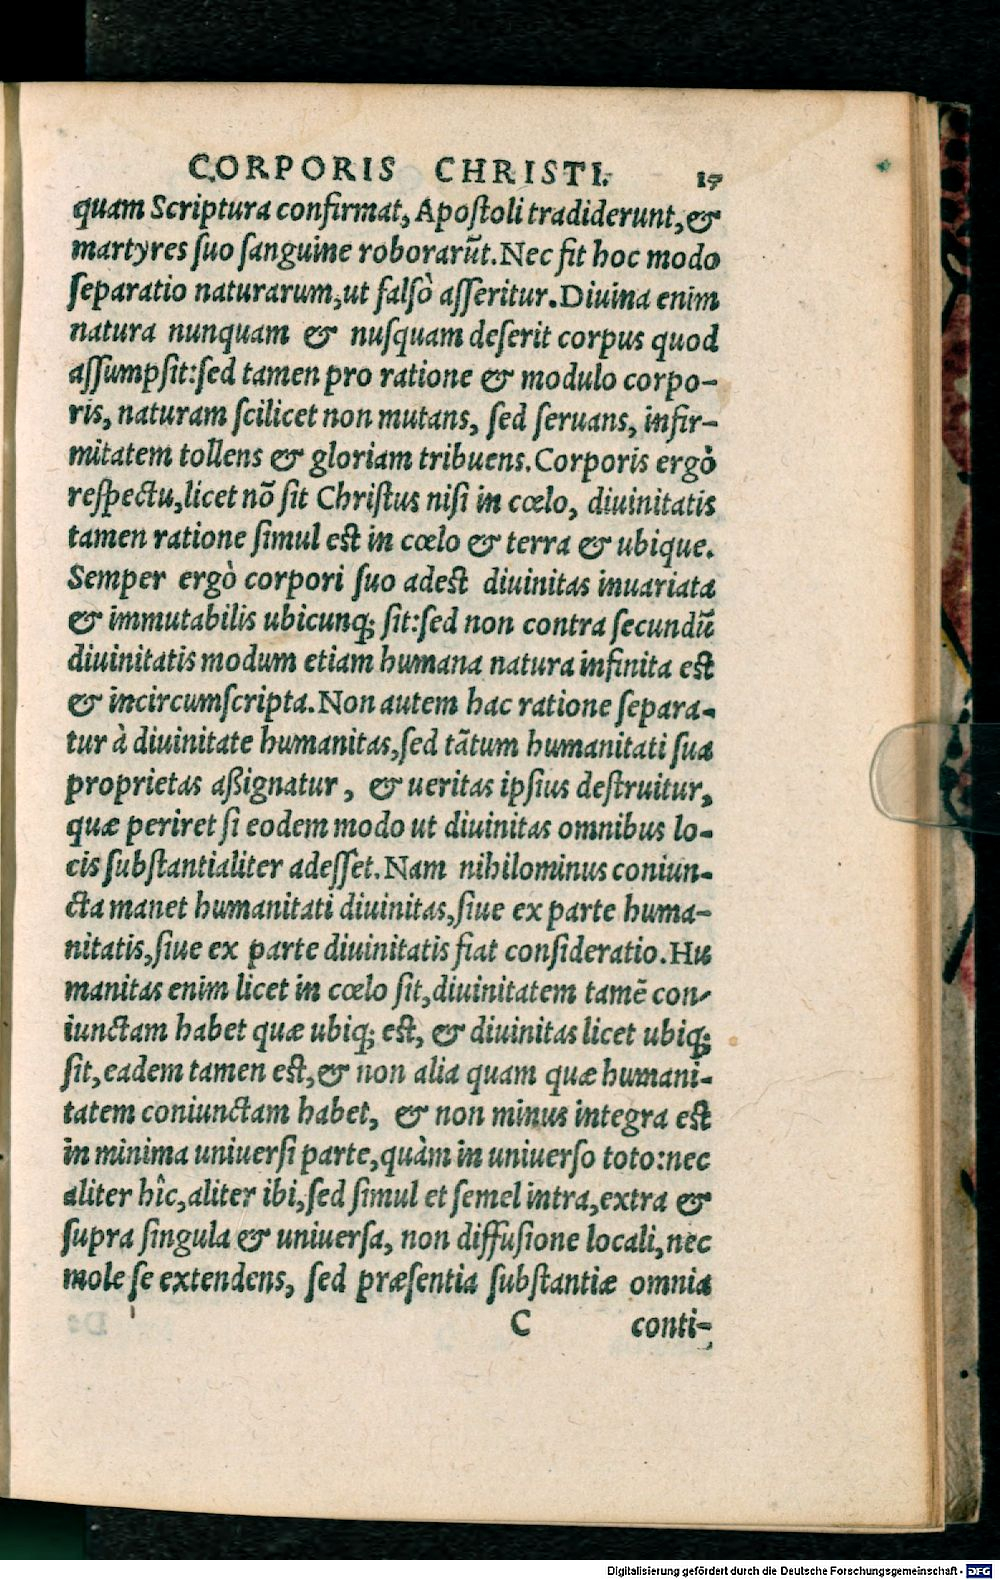 CORPORIS CHRISTI. 17
quam Scriptura confirmat, Apoſtoli tradiderunt, &
martyres ſuo ſanguine roborarũt. Nec fit hoc modo
ſeparatio naturarum, ut falſò aſſeritur. Diuina enim
natura nunquam & nuſquam deſerit corpus quod
aſſumpſit: ſed tamen pro ratione & modulo corpo-
ris, naturam ſcilicet non mutans, ſed ſeruans, infir-
mitatem tollens & gloriam tribuens. Corporis ergò
reſpectu, licet nõ ſit Chriſtus niſi in cœlo, diuinitatis
tamen ratione ſimul eſt in cœlo & terra & ubique.
Semper ergò corpori ſuo adeſt diuinitas inuariata
& immutabilis ubicunq; ſit: ſed non contra ſecundũ
diuinitatis modum etiam humana natura infinita eſt
& incircumſcripta. Non autem hac ratione ſepara-
tur à diuinitate humanitas, ſed tãtum humanitati ſua
proprietas aßignatur, & ueritas ipſius deſtruitur,
quæ periret ſi eodem modo ut diuinitas omnibus lo-
cis ſubſtantialiter adeſſet. Nam nihilominus coniun-
cta manet humanitati diuinitas, ſiue ex parte huma-
nitatis, ſiue ex parte diuinitatis fiat conſideratio. Hu
manitas enim licet in cœlo ſit, diuinitatem tamẽ con-
iunctam habet quæ ubiq; eſt, & diuinitas licet ubiq;
ſit, eadem tamen eſt, & non alia quam quæ humani-
tatem coniunctam habet, & non minus integra eſt
in minima uniuerſi parte, quàm in uniuerſo toto: nec
aliter hîc, aliter ibi, ſed ſimul et ſemel intra, extra &
ſupra ſingula & uniuerſa, non diffuſione locali, nec
mole ſe extendens, ſed præſentia ſubſtantiæ omnia
C conti-
Digitalisierung gefördert durch die Deutsche Forschungsgemeinschaft - DFG